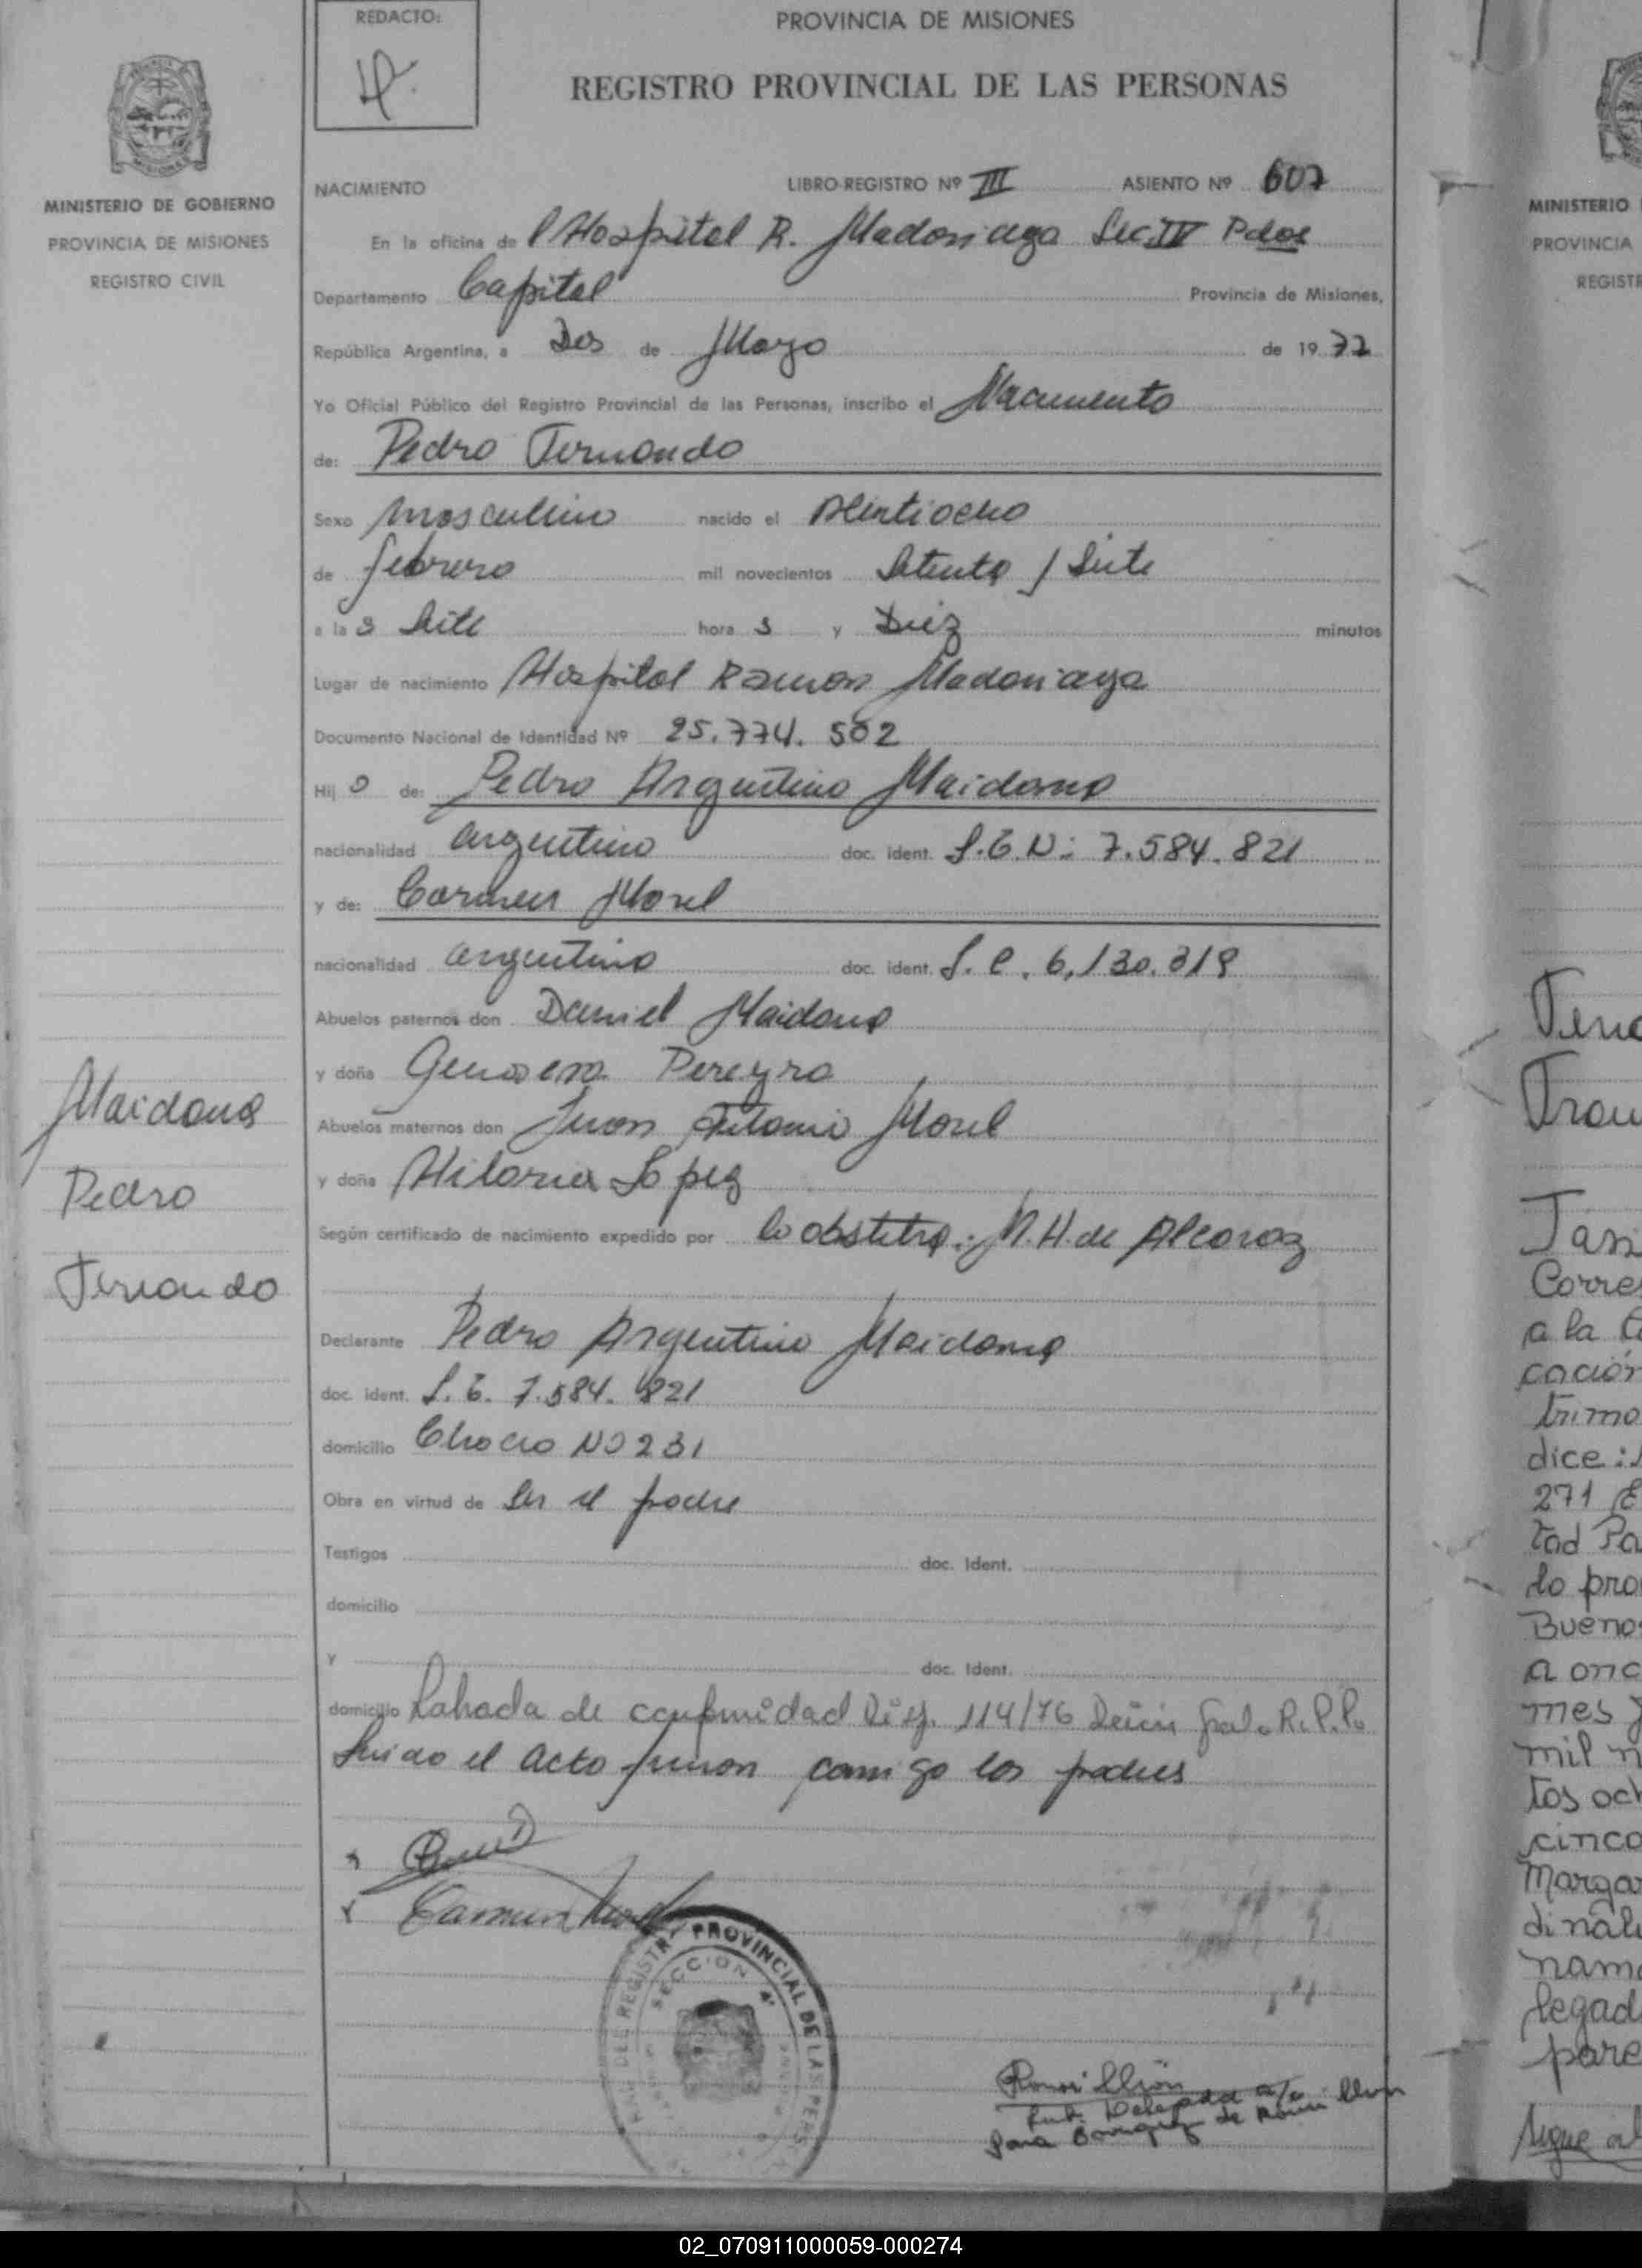 REDACTO:
PROVINCIA DE MISIONES
REGISTRO PROVINCIAL DE LAS PERSONAS
MINISTERIO DE GOBIERNO
PROVINCIA DE MISIONES
REGISTRO CIVIL
NACIMIENTO LIBRO-REGISTRO Nº III ASIENTO Nº 607
En la oficina del Hospital R. Madariaga Sec. IV Pdas
Departamento Capital Provincia de Misiones,
República Argentina, a Dos de Mayo de 1977
Yo Oficial Público del Registro Provincial de las Personas, inscribo el Nacimiento
de: Pedro Fernando
Sexo masculino nacido el Veintiocho
de febrero mil novecientos Setenta y Siete
a las Siete horas y Diez minutos
Lugar de nacimiento Hospital Ramon Madariaga
Documento Nacional de Identidad Nº 25.774.502
Hijo de: Pedro Argentino Maidana
nacionalidad argentino doc. ident. L.E.N: 7.584.821
y de: Carmen Morel
nacionalidad argentina doc. ident. L.C. 6.130.319
Abuelos paternos don Daniel Maidana
y doña Genoveva Pereyra
Abuelos maternos don Juan Antonio Morel
y doña Hilaria Lopez
Según certificado de nacimiento expedido por la obstetra: N.H. de Alcaraz
Declarante Pedro Argentino Maidana
doc. ident. L.E. 7.584.821
domicilio Chaco Nº 231
Obra en virtud de Ser el padre
Testigos doc. ident.
domicilio
y doc. ident.
domicilio Labrada de conformidad Disp. 114/76 Gral. R.P.P.
Leido el acto firman conmigo los padres
Carmen Morel
Maidana
Pedro
Fernando
REGISTRO PROVINCIAL DE LAS PERS
SECCION 4ª
MINISTERIO
PROVINCIA
REGIST
Corre
a la
cación
trimo
dice:
271
tad Pa
lo pro
Bueno
a onc
mes y
mil n
tos och
cinco
Marga
dinal
nam
legad
pare
sigue al
02_070911000059-000274